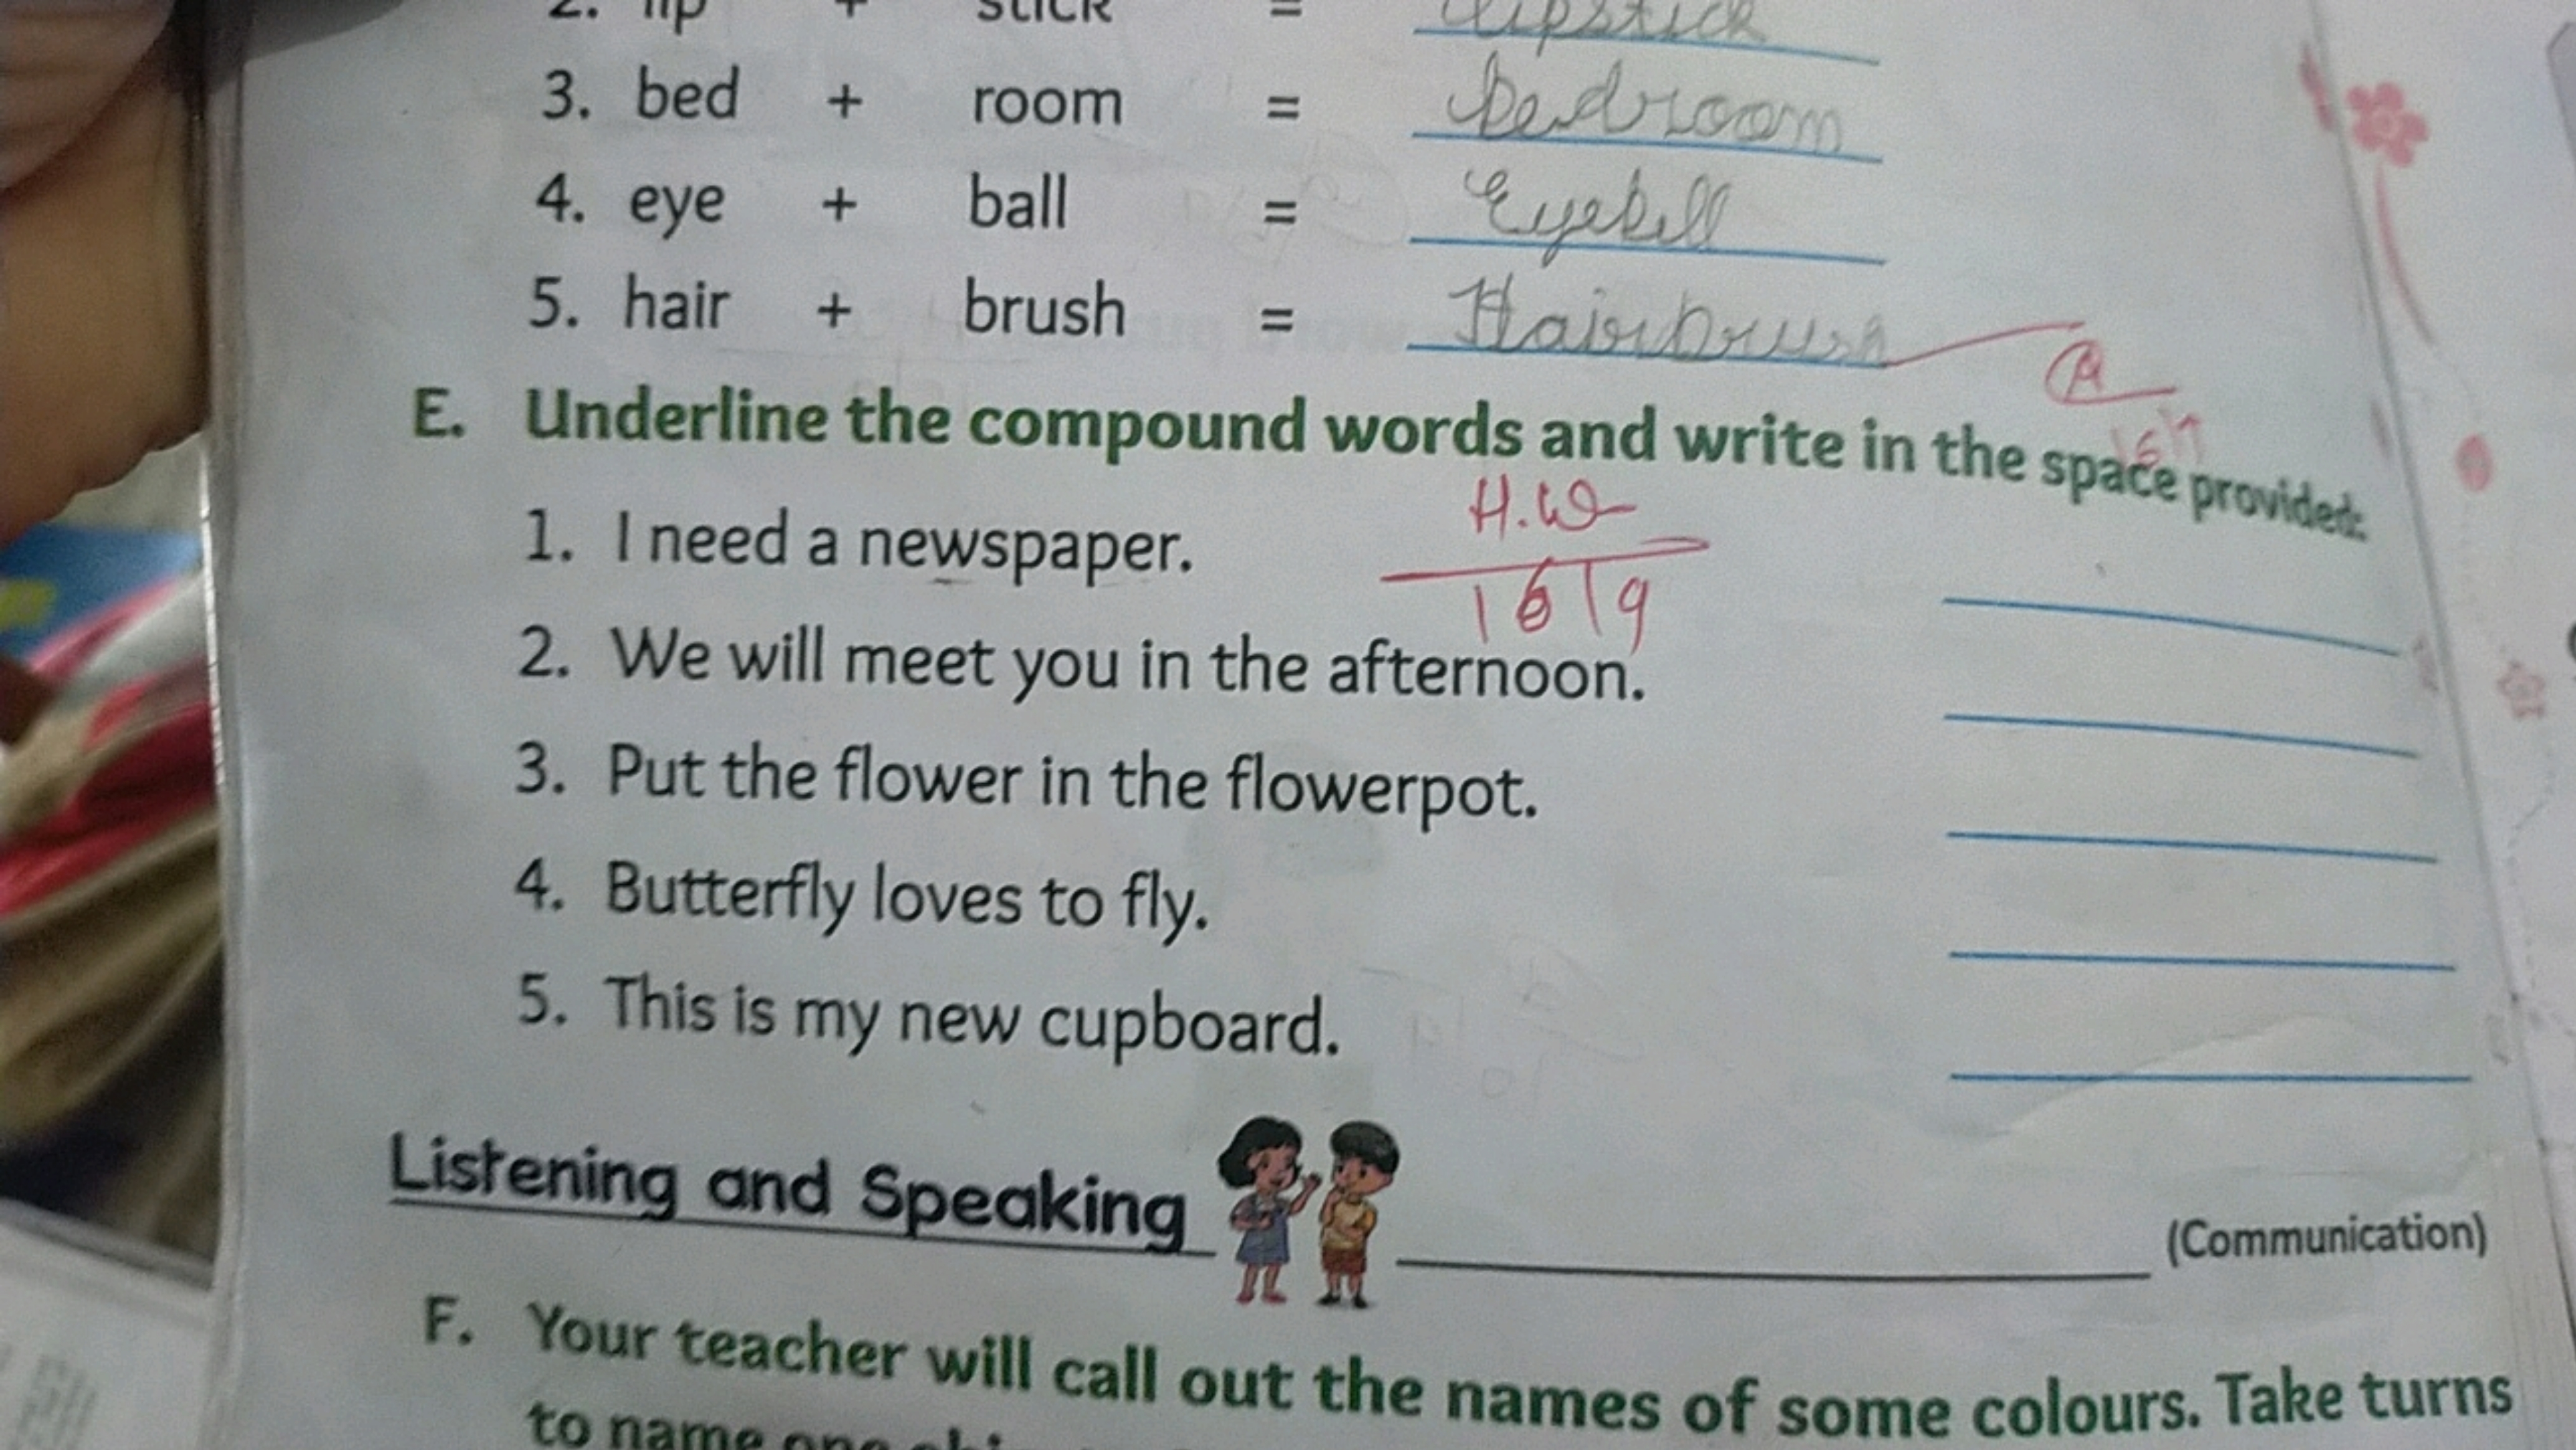 2. lip + stick = lipstick
3. bed + room = bedroom
4. eye + ball = Eyeball
5. hair + brush = Hairbrush
E. Underline the compound words and write in the space provided:
H.W
16/9
1. I need a newspaper.
2. We will meet you in the afternoon.
3. Put the flower in the flowerpot.
4. Butterfly loves to fly.
5. This is my new cupboard.
Listening and Speaking (Communication)
F. Your teacher will call out the names of some colours. Take turns
to name one